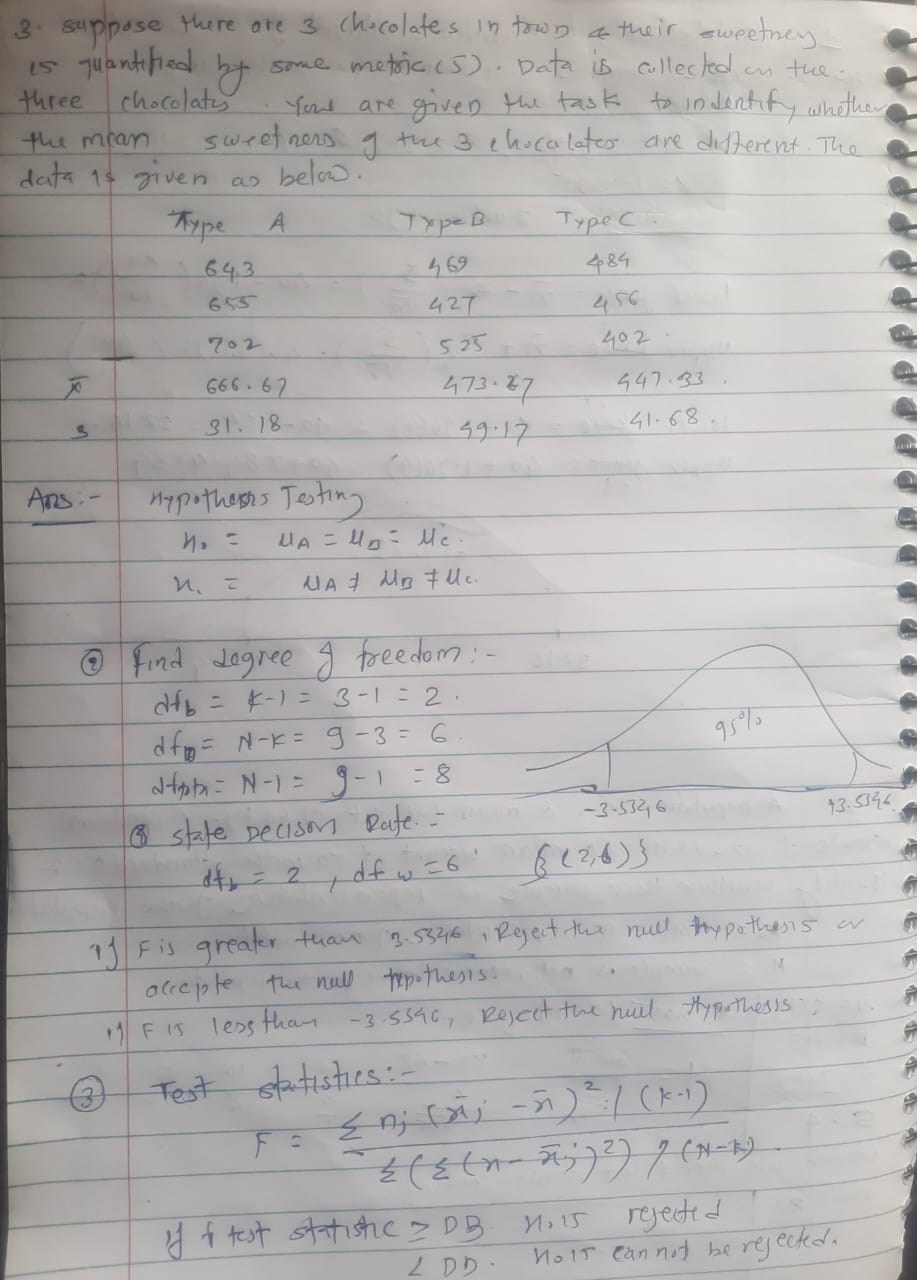 3. suppose there are 3 chocolates in town & their sweetney
is quantified by some metric (S). Data is collected on the
three chocolaty. You are given the task to indentify whether
the mean sweetness of the 3 chocolates are different. The
data is given as below.
Type A Type B Type C
643 469 484
655 427 456
702 525 402
x̄ 666.67 473.67 447.33
s 31.18 49.17 41.68
Ans:- Hypothesis Testing
H₀ = μA = μB = μC.
H₁ = μA ≠ μB ≠ μC.
② Find degree of freedom:-
dfb = K-1 = 3-1 = 2.
dfw = N-K = 9-3 = 6.
95%
N-1 = 9-1 = 8
-3.5346 +3.5346
state Decison Rate. =
dfb = 2, df w = 6 {(2,6)}
If F is greater than 3.5346, Reject the null Hypothesis or
accepte the null hypothesis.
If F is less than -3.5546, Reject the null Hypothesis
③ Test statistics:-
F = Σ nj (x̄j - x̄)² / (K-1)
Σ(Σ(x - x̄j)²) / (N-K)
If f test statistic ≥ H₀ is rejected
< DD. H₀ is can not be rejected.